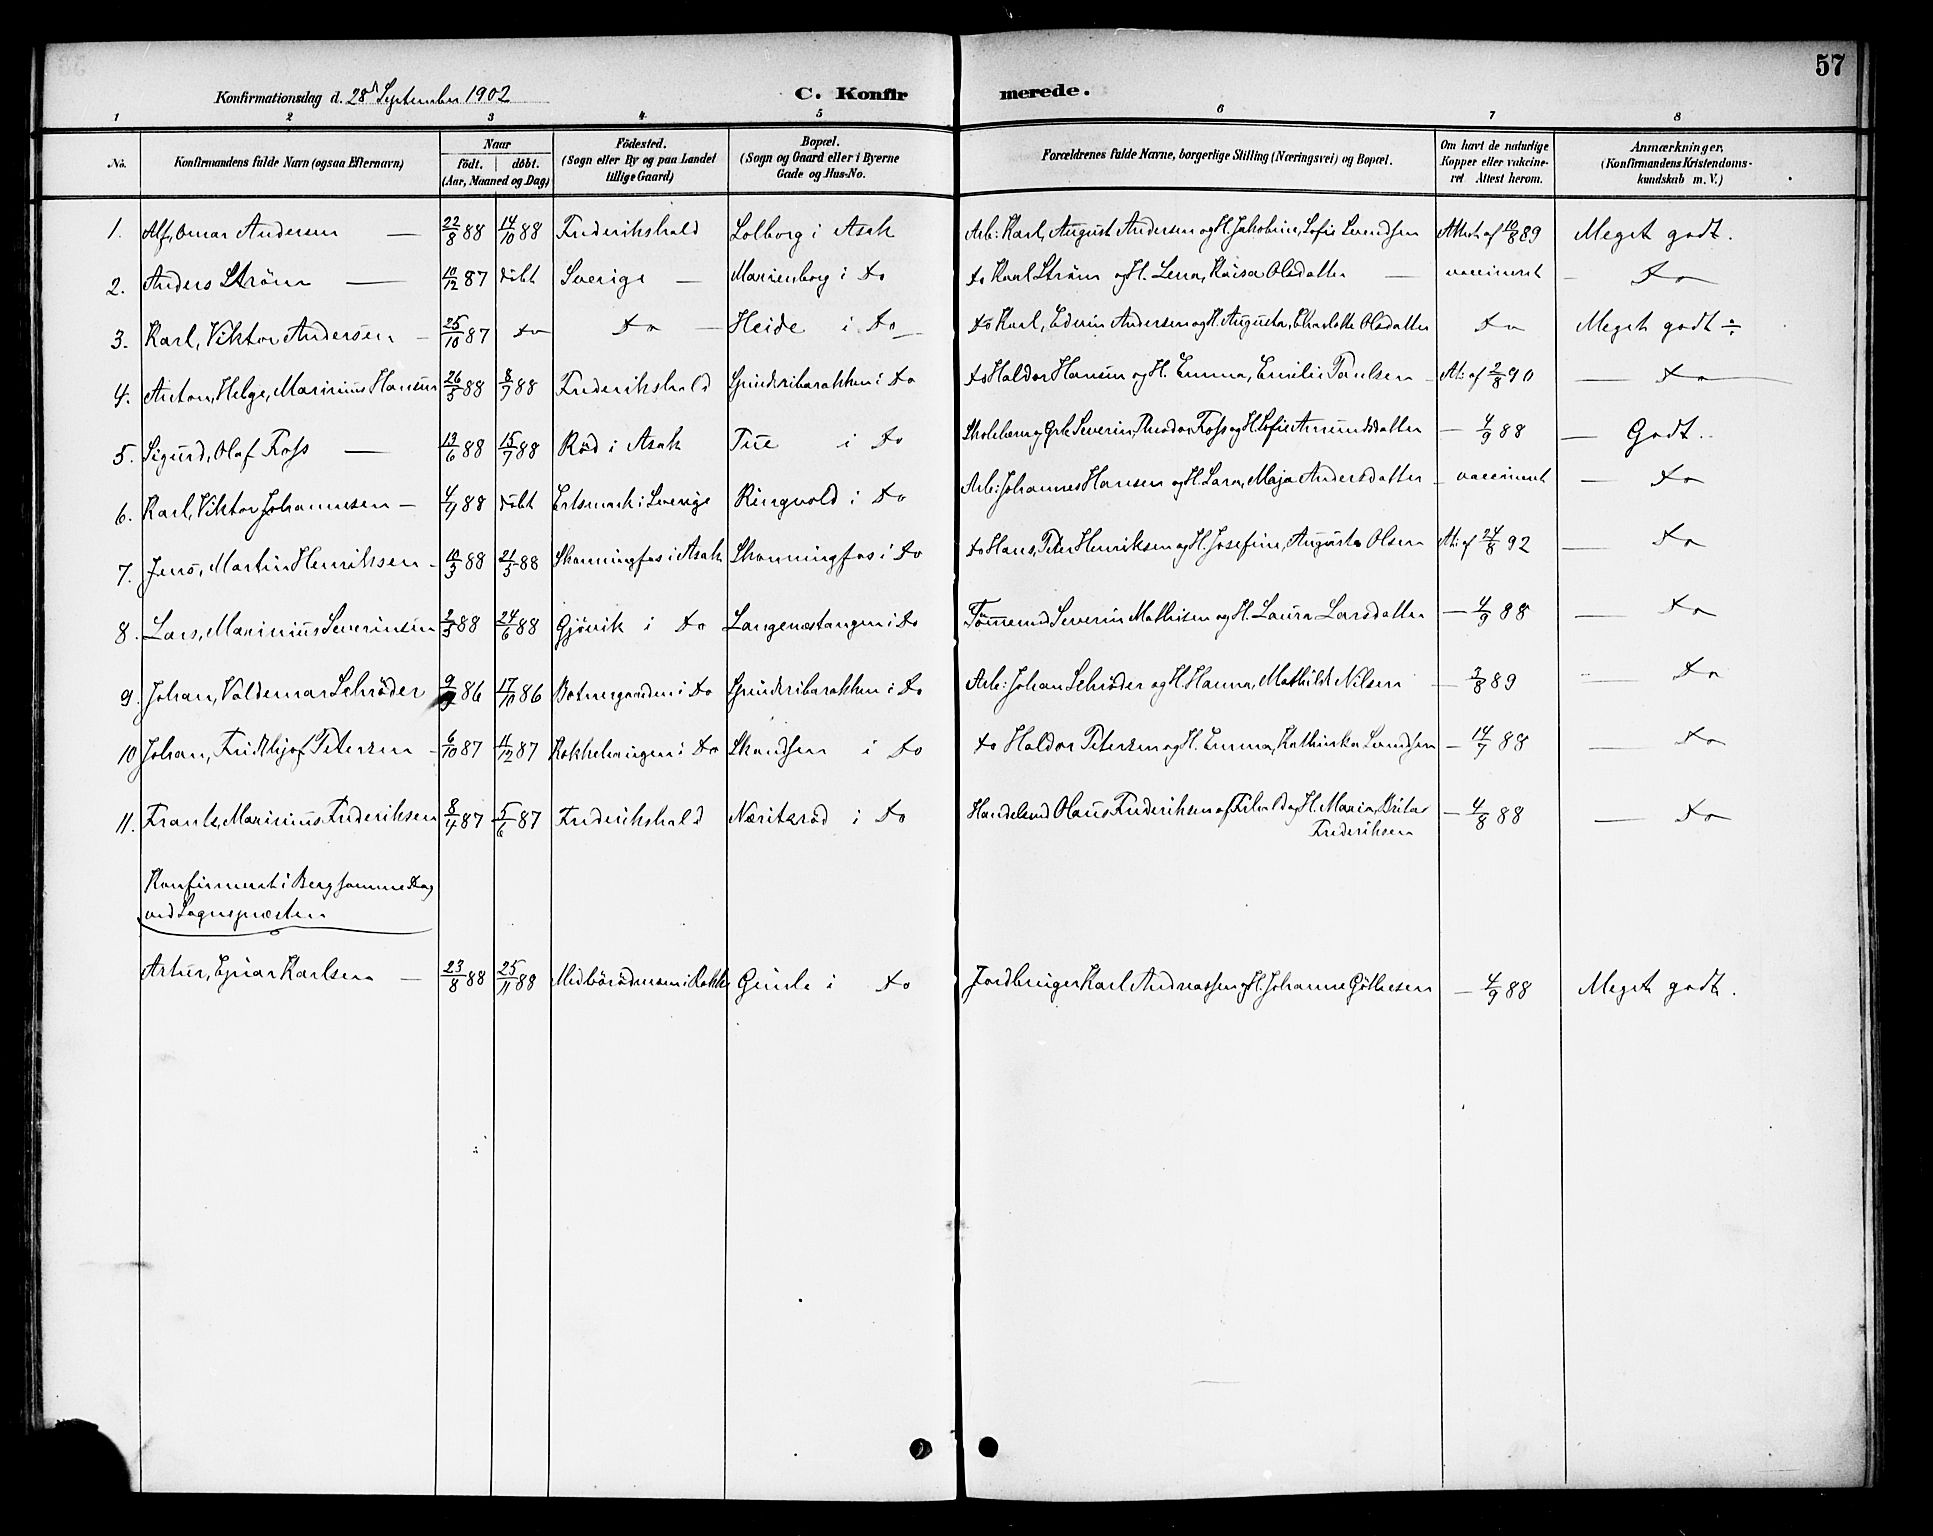 57
Konfirmationsdag d. 28d September 1902 C. Konfirmerede.
1 2 3 4 5 6 7 8
No. Konfirmandens fulde Navn (ogsaa Efternavn) Naar födt. döbt. (Aar, Maaned og Dag) Födested. (Sogn eller By og paa Landet tillige Gaard) Bopæl. (Sogn og Gaard eller i Byerne Gade og Hus-No. Forældrenes fulde Navne, borgerlige Stilling (Næringsvei) og Bopæl. Om havt de naturlige Kopper eller vakcineret Attest herom. Anmærkninger, (Konfirmandens Kristendomskundskab m. V.)
1. Alf, Omar Andersen — 22/8 88 14/10 88 Frederikshald Solborg i Asak Arb: Karl, August Andersen og H. Jakobine, Sofie Svendsen Attest af 19/8 89 Meget godt.
2. Anders Ström — 10/12 87 döbt Sverige — Marienborg i do do Karl Ström og H. Lena, Kaisa Olsdatter — vaccineret — do
3. Karl, Viktor Andersen — 25/10 87 do do — Heide i do do Karl, Edvin Andersen og H. Augusta, Charlotte Olsdatter do Meget godt ÷
4. Anton, Helge, Marinius Hansen 26/5 88 8/7 88 Frederikshald Spinderibarakken i do do Haldor Hansen og H. Emma, Emilie Paulsen At: af 2/8 90 — do
5. Sigurd, Olaf Foss — 13/6 88 15/7 88 Röd i Asak Tue i do Skolelærer og Grb. Severin, Theodor Foss og H. Sofie Amundsdatter — 4/9 88 — Godt.
6. Karl, Viktor Johannesen — 4/4 88 döbt Ertemark i Sverige Ringvold i do Arb: Johannes Hansen og H. Sara, Maja Andersdatter — vaccineret — do
7. Jens, Martin Henriksen — 10/3 88 21/5 88 Skonningfos i Asak Skonningfos i do do Hans, Peter Henriksen og H. Josefine, Augusta Olsen At: af 24/8 92 — do
8. Lars, Marinius Severinsen 2/5 88 24/6 88 Gjövik i do Langenæstangen i do Tömmermd Severin Mathisen og H. Laura Larsdatter — 4/9 88 — do
9. Johan, Valdemar Schröder 9/9 86 17/10 86 Botnergaarden i do Spinderibarakken i do Arb: Johan Schröder og H. Hanna, Mathilde Nilsen — 3/8 89 — do
10 Johan, Fridthjof Petersen — 6/10 87 11/12 87 i do Skandsen i do do Haldor Petersen og H. Emma, Kathinka Svendsen — 14/7 88 — do
11. Frantz, Marinius Frederiksen 8/4 87 5/6 87 Frederikshald Næridsröd i do Handelsmd Olaus Frederiksen af Frhald og H. Maria, Brita — 4/8 88 — do
Frederiksen
Konfirmeret i Berg samme Dag
ved Sognepræsten
Artur, Ejnar Karlsen — 23/8 88 25/11 88 i Rokke Gimle i do Jordbruger Karl Andreassen og H. Johanne — 4/9 88 Meget godt.